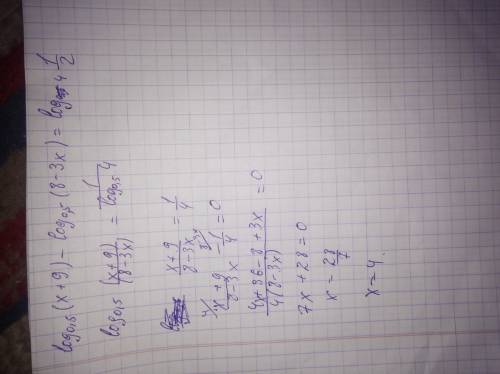 log₀,₅(x+9) - log₀,₅(8-3x) = log₄ 1/2
log₀,₅ (x+9)/(8-3x) = 1/log₀,₅ 4
(x+9)/(8-3x) = 1/4
4/ (x+9)/(8-3x) - 1/4 = 0
(4x+36-8+3x)/(4(8-3x)) = 0
7x+28=0
x = 28/7
x=4.